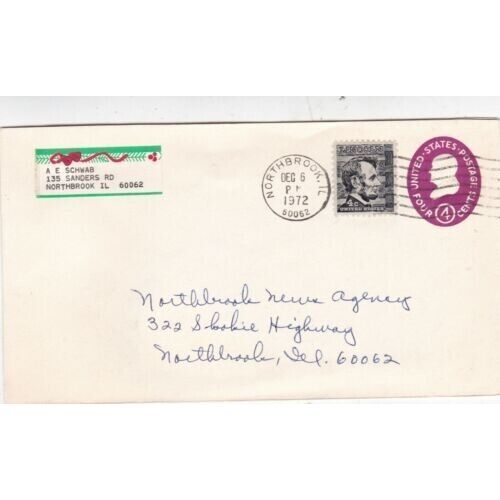 A E SCHWAB
135 SANDERS RD
NORTHBROOK IL 60062
NORTHBROOK, IL
DEC 6
PM
1972
60062
4c
UNITED STATES
UNITED·STATES·POSTAGE
FOUR 4 CENTS
Northbrook News Agency
322 Skokie Highway
Northbrook, Ill. 60062